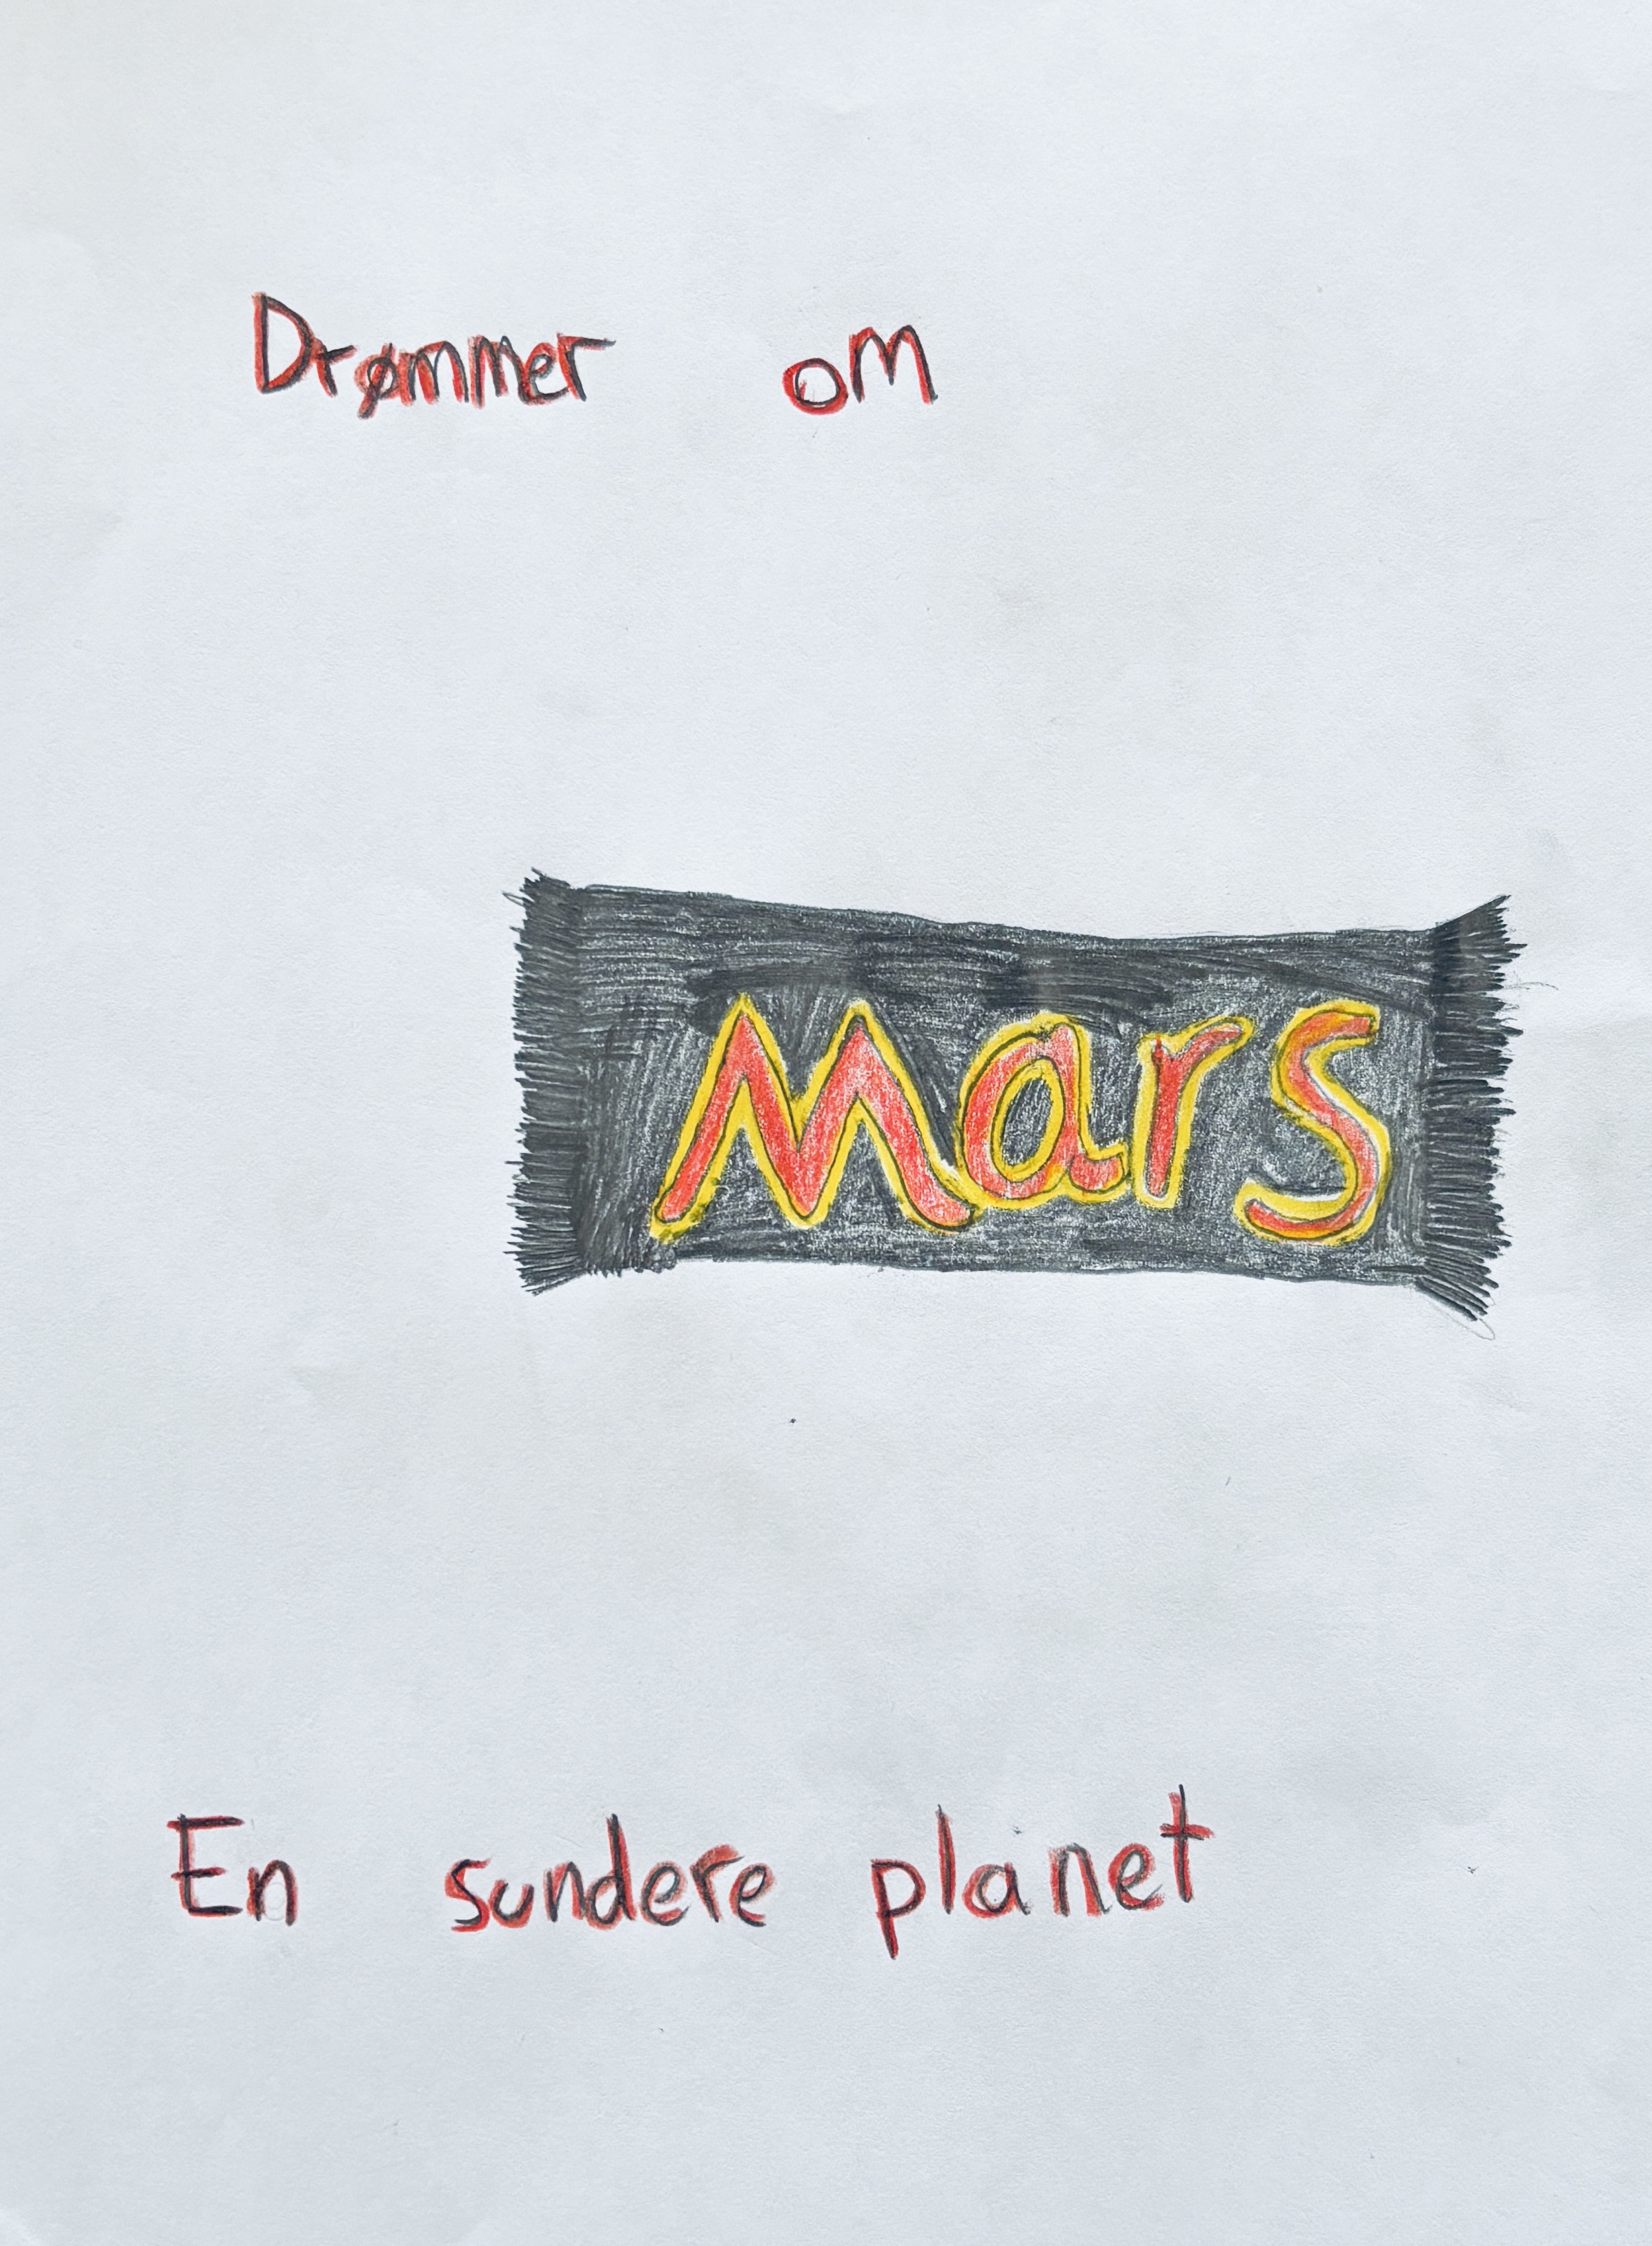 Drømmer om
Mars
En sundere planet